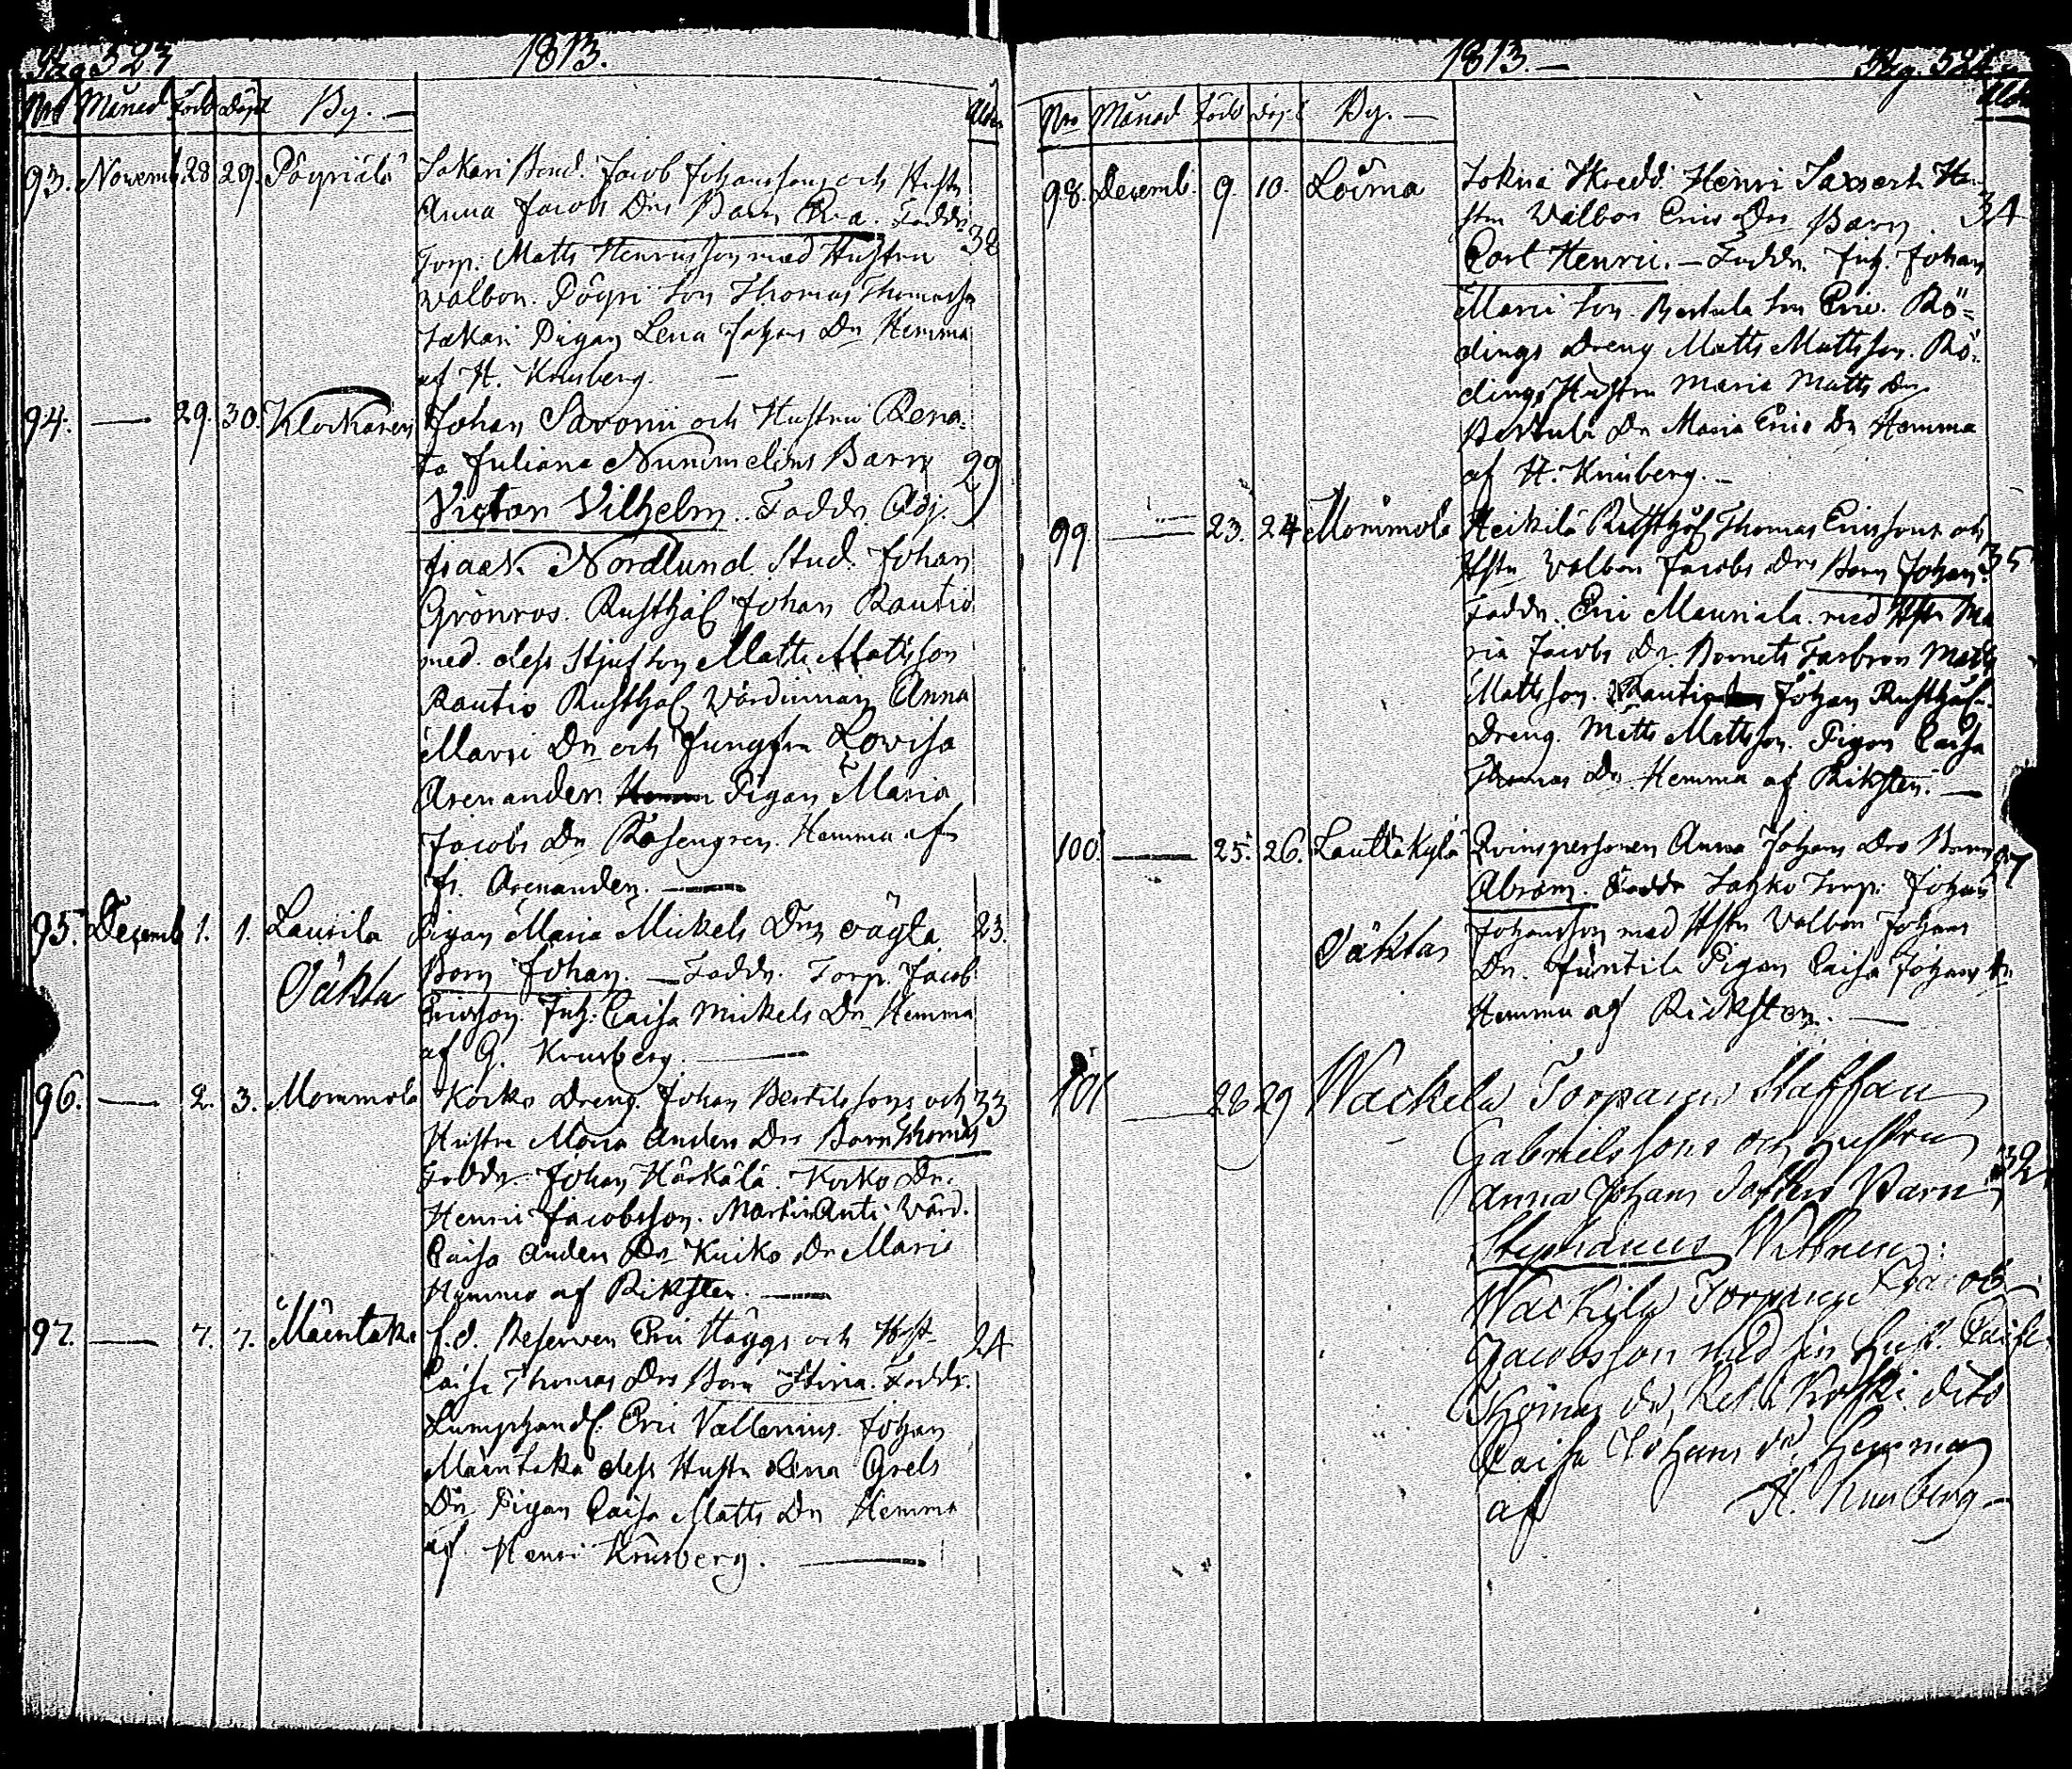 Pag. 523
1813.
Nro Månad Född Döpt By. — Ålder
93. Novemb. 28. 29. Pöyriälä Sakari Bond. Jacob Johanssons och Hustr
Anna Jacobs Drs Barn Eva. Faddr. 38
Torp. Matts Henricsson med Hustru
Walbor. Pöyri Son Thomas Thomasson
Sakari Pigan Lena Johans Dr Hemma
af H. Krusberg. —
94. — 29. 30. Klockaren Johan Savonii och Hustru Rena-
ta Juliana Nummelins Barn 29
Victor Vilhelm. Faddr. Adj.
Isaac Nordlund. Stud. Johan
Grönros. Rusthål. Johan Rautio
med dess Stjufson Matts Mattsson
Rautio Rusthål. Värdinnan Anna
Marci Dr och Jungfru Lovisa
Arenander. Pigan Maria
Jacobs Dr Rosengren. Hemma af
Fr. Arenander. —
95. Decemb. 1. 1. Laurila Pigan Maria Mickels Drs oägta 23.
Oäkta Barn Johan. — Faddr. Torp. Jacob
Ericsson. Inh. Caisa Mickels Dr Hemma
af G. Krusberg. —
96. — 2. 3. Mommola Korko Dreng Johan Bertilssons och 33
Hustru Maria Anders Drs Barn Thomas
Faddr. Johan Härkälä. Korko Dr.
Henric Jacobsson. Martin Anti. Värd.
Caisa Anders Dr Kniko Dr Maria
Hemma af Riksten. —
97. — 7. 7. Mäentaka f.d. Reserven Eric Häggs och Hust.
Caisa Thomas Drs Barn Stina. Faddr. 24
Lumphandl. Eric Vallenius. Johan
Mäentaka dess Hustr Lena Grels
Dr. Pigan Caisa Matts Dr Hemma
af Henric Krusberg. —
1813. — Pag. 524
Nro Månad Född Döpt By. — Ålder
98. Decemb. 9. 10. Loima Sokna Skredd. Henric Saxberk Hu-
stru Walbor Erics Drs Barn 34
Carl Henric. — Faddr. Inh. Johan
Marci Son. Bertula Son Eric. Rö-
dings Dreng Matts Mattsson. Rö-
dings Hustru Maria Matts Dr
Bertula Dr Maria Erics Dr Hemma
af H. Krusberg. —
99 — 23. 24 Mommola Heikilä Rusthål. Thomas Ericssons och
Hstr Walbor Jacobs Drs Barn Johan. 35
Faddr. Eric Mauriala med Hstr Ma
ria Jacobs Dr. Barnets Farbror Matts
Mattsson. Rautio Johan Rusthål.
Dreng. Matts Mattsson. Pigan Caisa
Thomas Dr Hemma af Riksten. —
100. — 25. 26. Lauttakylä Qvinspersonen Anna Johans Drs Barn
Abram. Faddr Torp. Johan
Oäktas Johansson med Hstr Walbor Johans
Dr. Juntila Pigan Caisa Johans Dr
Hemma af Ricksten. —
101 — 28 29 Wackela Torparen Staffan
Gabrielssons och Hustrun
Anna Johans Dotters Barn 32
Stephanus Wittnen:
Wackila Torparen Jacob
Jacobsson med sin Hust. Caisa
Thomas dr, Koski dito
Caisa Johans dr Hemma
af H. Krusberg —